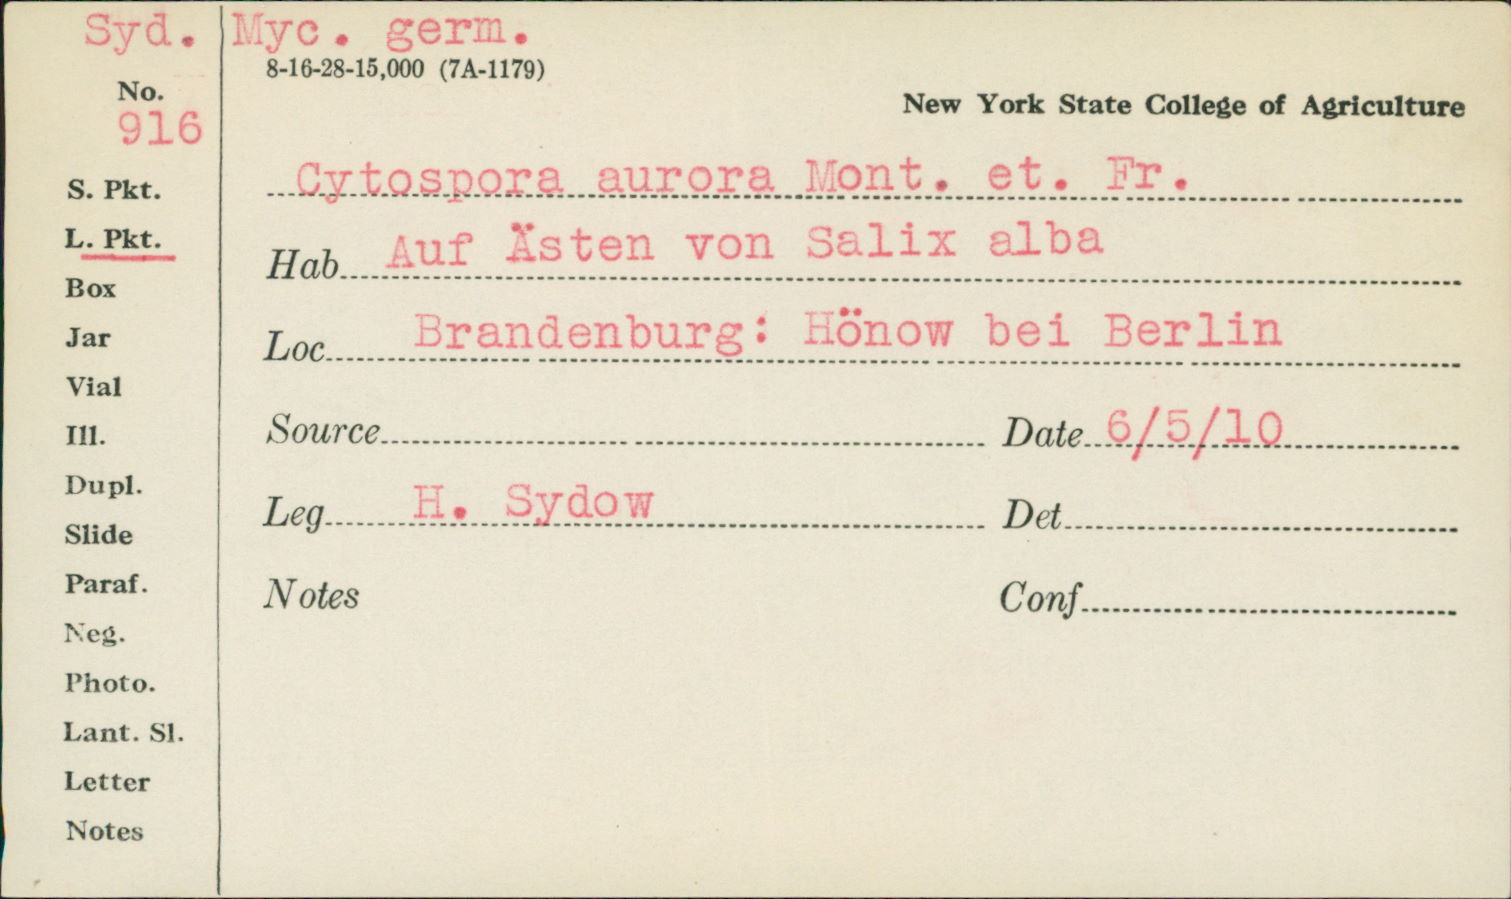 Syd. Myc. germ.
8-16-28-15,000 (7A-1179)
No.
916
New York State College of Agriculture
Cytospora aurora Mont. et. Fr.
S. Pkt.
L. Pkt.
Hab Auf Ästen von Salix alba
Box
Loc Brandenburg: Hönow bei Berlin
Jar
Vial
Source Date 6/5/10
Ill.
Dupl.
Leg H. Sydow Det
Slide
Paraf.
Notes Conf
Neg.
Photo.
Lant. Sl.
Letter
Notes